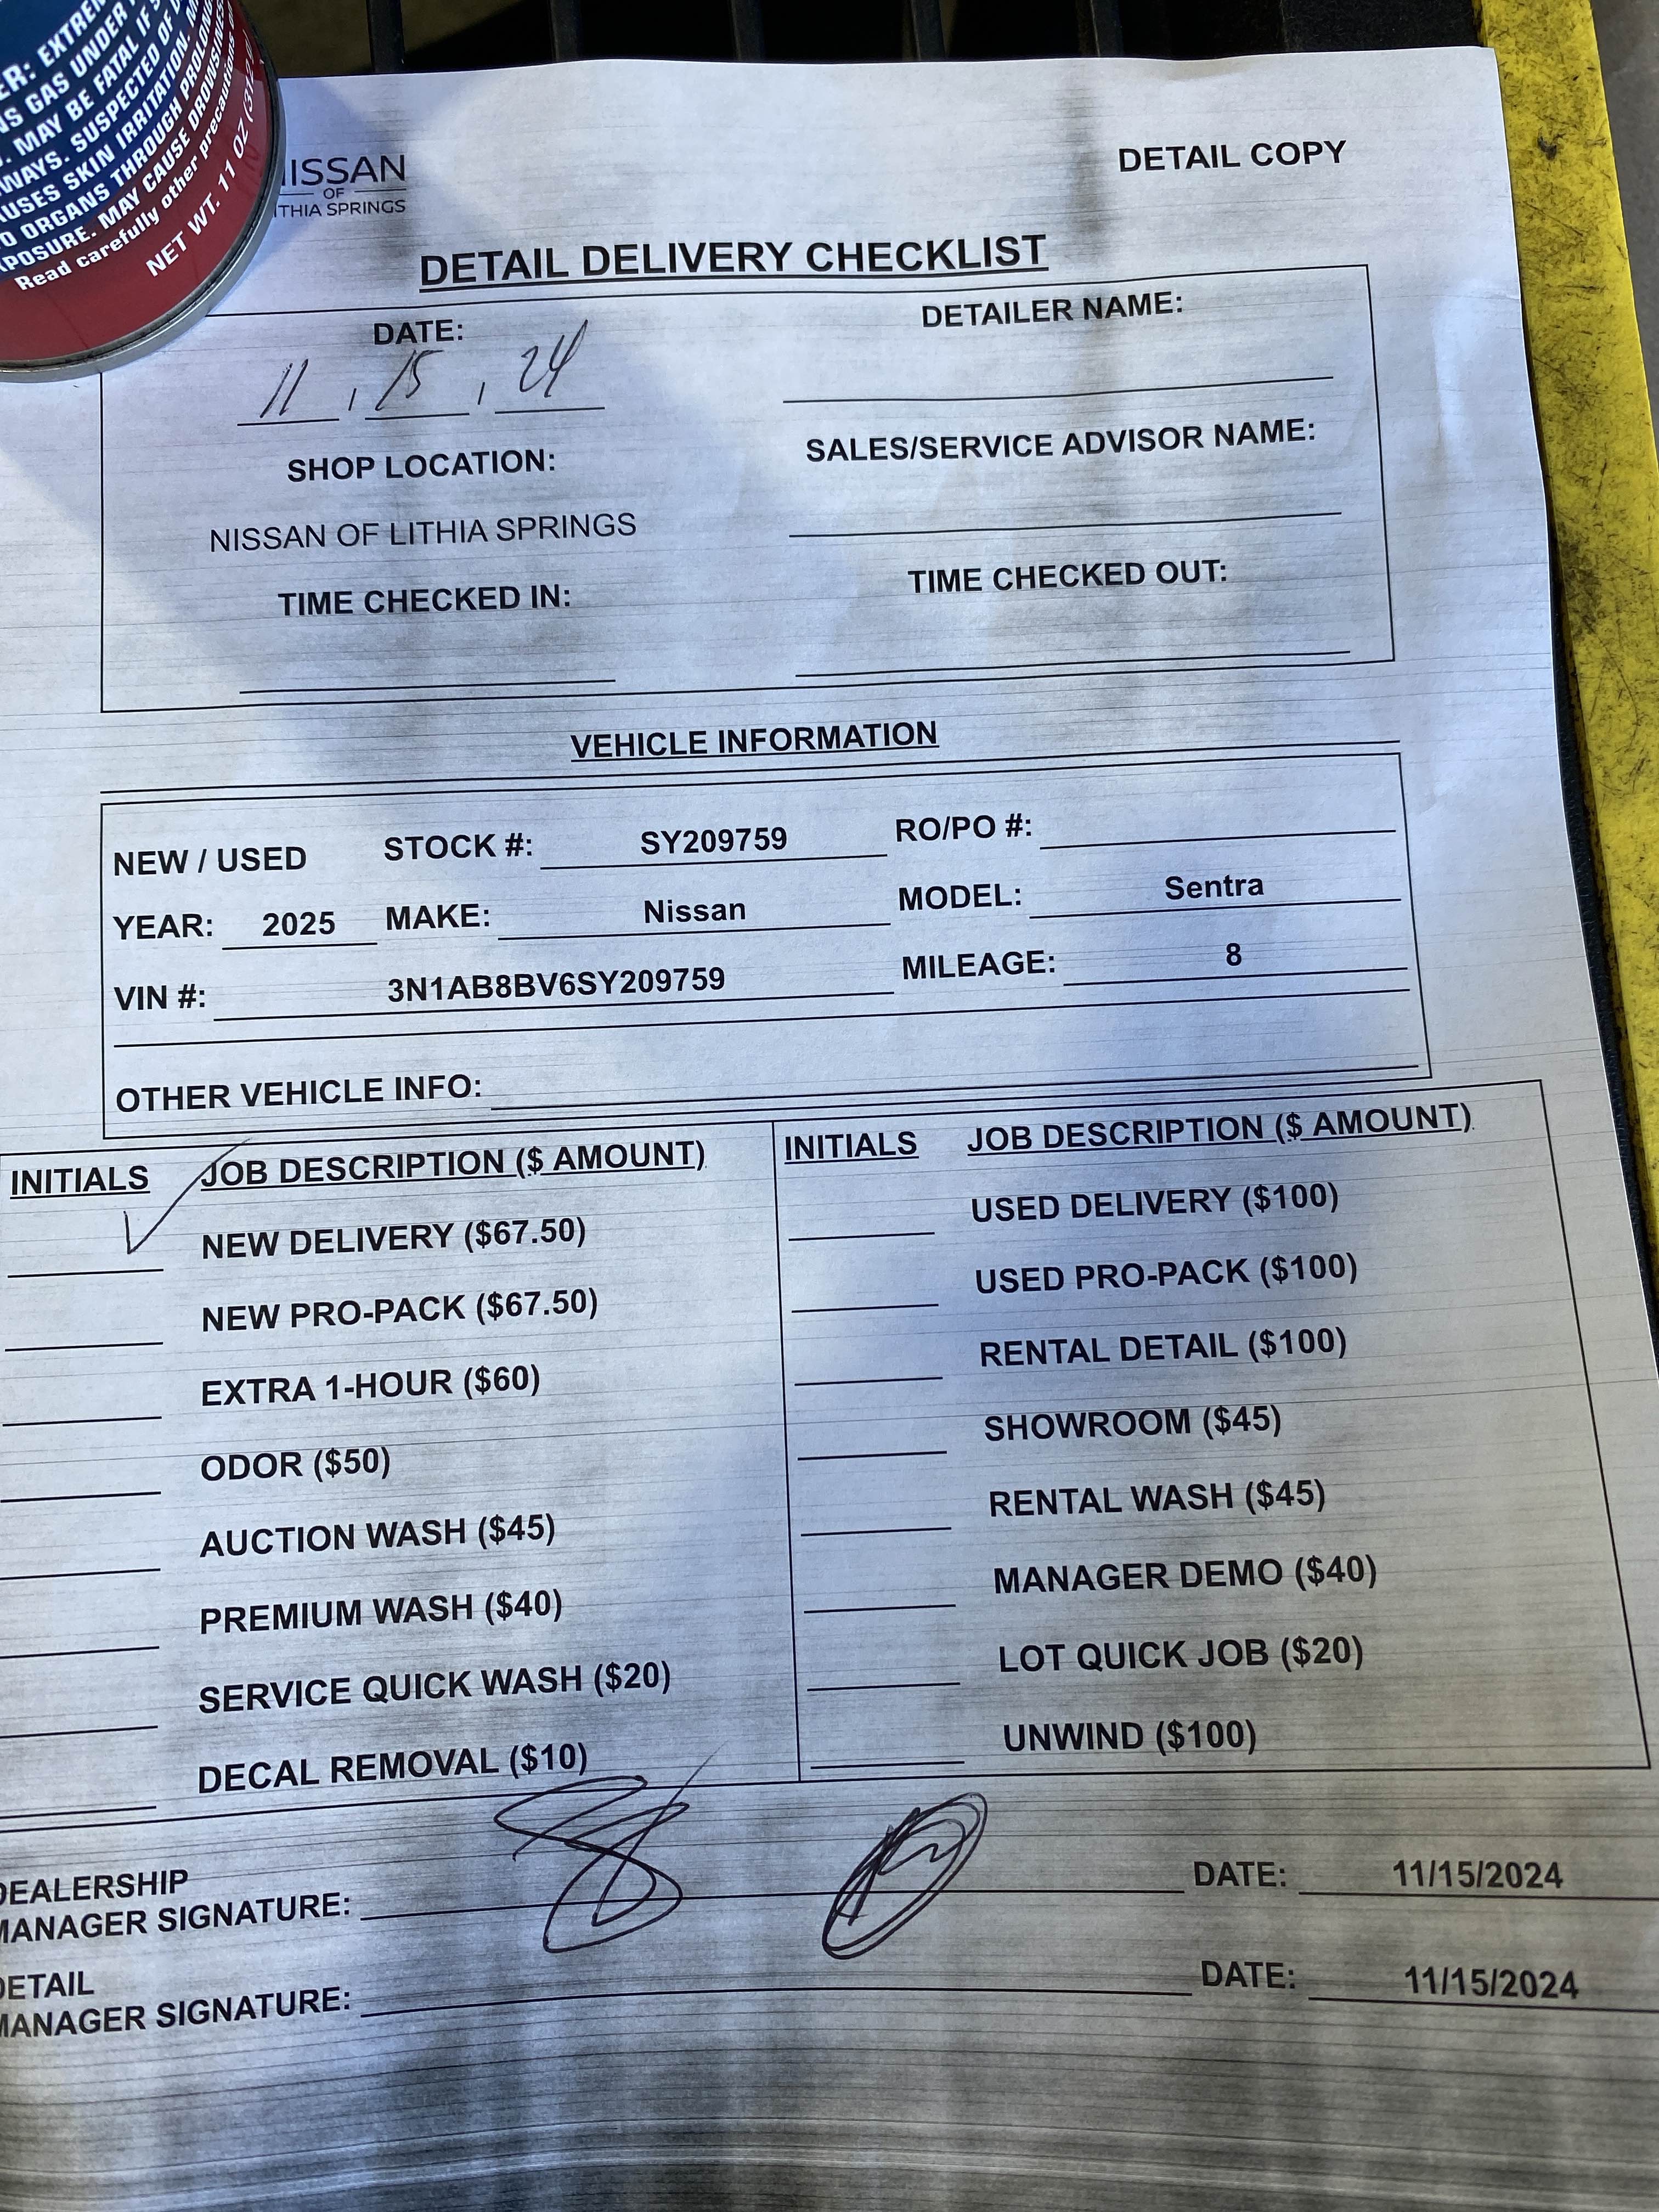 ER: EXTREM
NS GAS UNDER
. MAY BE FATAL IF S
WAYS. SUSPECTED OF
AUSES SKIN IRRITATION.
O ORGANS THROUGH PROLON
XPOSURE. MAY CAUSE DROWSIN
Read carefully other precaution
NET WT. 11 OZ
NISSAN
OF
THIA SPRINGS
DETAIL COPY
DETAIL DELIVERY CHECKLIST
DATE: DETAILER NAME:
11 , 15 , 24
SHOP LOCATION: SALES/SERVICE ADVISOR NAME:
NISSAN OF LITHIA SPRINGS
TIME CHECKED IN: TIME CHECKED OUT:
VEHICLE INFORMATION
NEW / USED STOCK #: SY209759 RO/PO #:
YEAR: 2025 MAKE: Nissan MODEL: Sentra
VIN #: 3N1AB8BV6SY209759 MILEAGE: 8
OTHER VEHICLE INFO:
INITIALS JOB DESCRIPTION ($ AMOUNT) INITIALS JOB DESCRIPTION ($ AMOUNT)
✓ NEW DELIVERY ($67.50) USED DELIVERY ($100)
NEW PRO-PACK ($67.50) USED PRO-PACK ($100)
EXTRA 1-HOUR ($60) RENTAL DETAIL ($100)
ODOR ($50) SHOWROOM ($45)
AUCTION WASH ($45) RENTAL WASH ($45)
PREMIUM WASH ($40) MANAGER DEMO ($40)
SERVICE QUICK WASH ($20) LOT QUICK JOB ($20)
DECAL REMOVAL ($10) UNWIND ($100)
DEALERSHIP
MANAGER SIGNATURE: DATE: 11/15/2024
DETAIL
MANAGER SIGNATURE: DATE: 11/15/2024